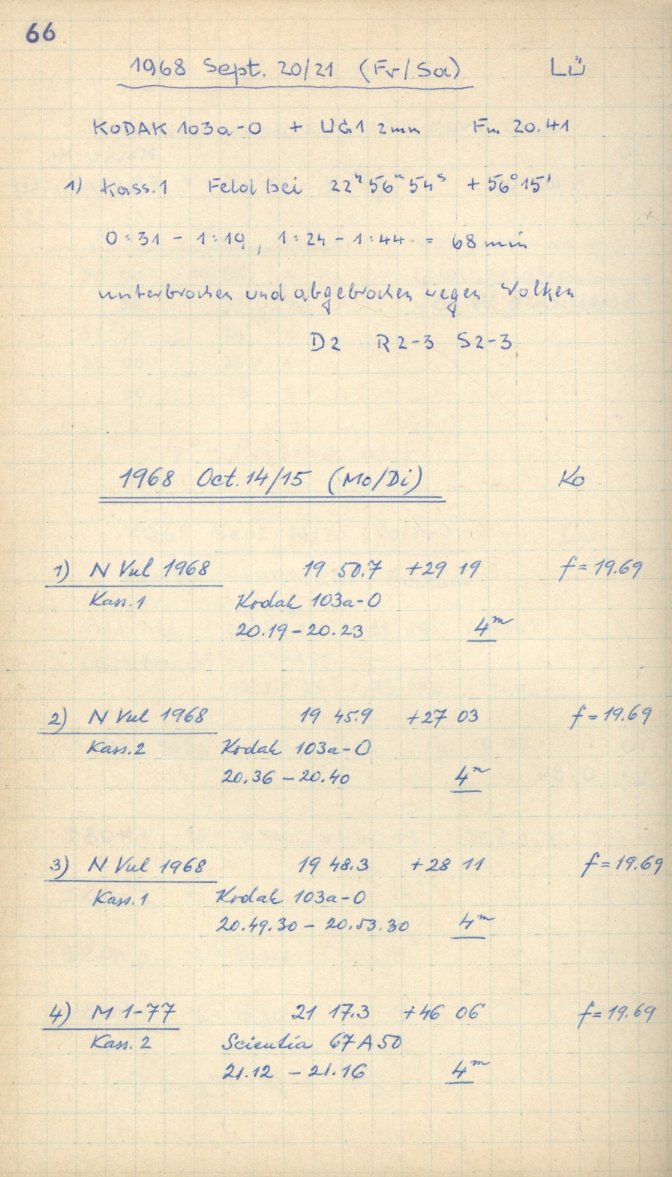 66
1968 Sept. 20/21 (Fr/Sa) LÜ
KODAK 103a-O + UG1 2mm Fm 20.41
1) Kass.1 Feld bei 22ʰ56ᵐ54ˢ +56°15'
0:31 - 1:19, 1:24 - 1:44 = 68 min
unterbrochen und abgebrochen wegen Wolken
D2 R2-3 S2-3
1968 Oct. 14/15 (Mo/Di) Ko
1) N Vul 1968 19 50.7 +29 19 f = 19.69
Kass.1 Kodak 103a-O
20.19 - 20.23 4ᵐ
2) N Vul 1968 19 45.9 +27 03 f = 19.69
Kass.2 Kodak 103a-O
20.36 - 20.40 4ᵐ
3) N Vul 1968 19 48.3 +28 11 f = 19.69
Kass.1 Kodak 103a-O
20.49.30 - 20.53.30 4ᵐ
4) M 1-77 21 17.3 +46 06 f = 19.69
Kass. 2 Scientia 67A50
21.12 - 21.16 4ᵐ